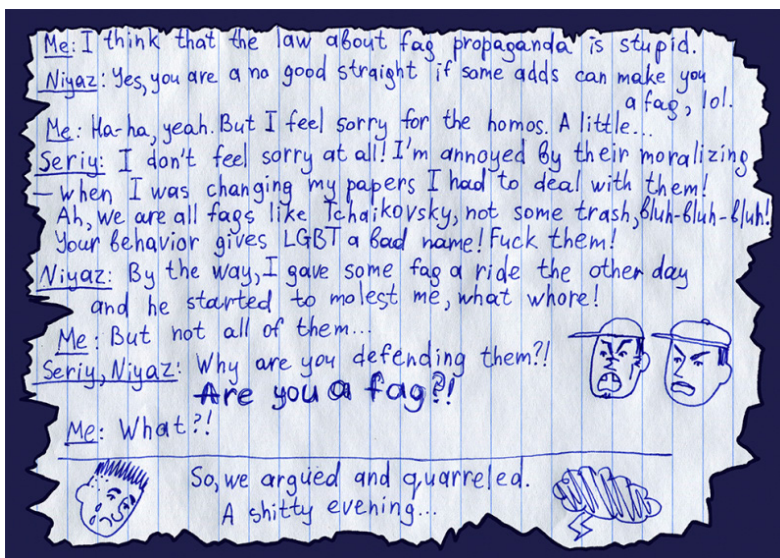 Me: I think that the law about fag propaganda is stupid.
Niyaz: Yes, you are a no good straight if some adds can make you
a fag, lol.
Me: Ha-ha, yeah. But I feel sorry for the homos. A little...
Seriy: I don't feel sorry at all! I'm annoyed by their moralizing
– when I was changing my papers I had to deal with them!
Ah, we are all fags like Tchaikovsky, not some trash, bluh-bluh-bluh!
Your behavior gives LGBT a bad name! Fuck them!
Niyaz: By the way, I gave some fag a ride the other day
and he started to molest me, what whore!
Me: But not all of them...
Seriy, Niyaz: Why are you defending them?!
Are you a fag?!
Me: What?!
So, we argued and quarreled.
A shitty evening...